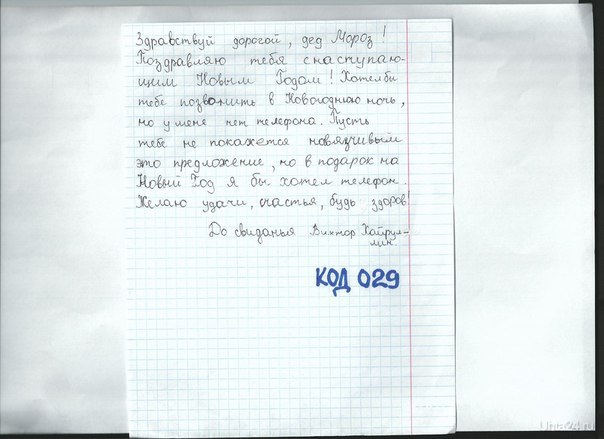 Здравствуй дорогой, дед Мороз!
Поздравляю тебя с наступаю-
щим Новым Годом! Хотел би
тебе позвонить в Новогоднюю ночь,
но у меня нет телефона. Пусть
тебе не покажется новязчивым
это предложение, но в подарок на
Новый Год я бы хотел телефон.
Желаю удачи, счастья, будь здоров!
До свиданья Виктор Хайрул-
лин.
КОД 029
Ujna24.ru